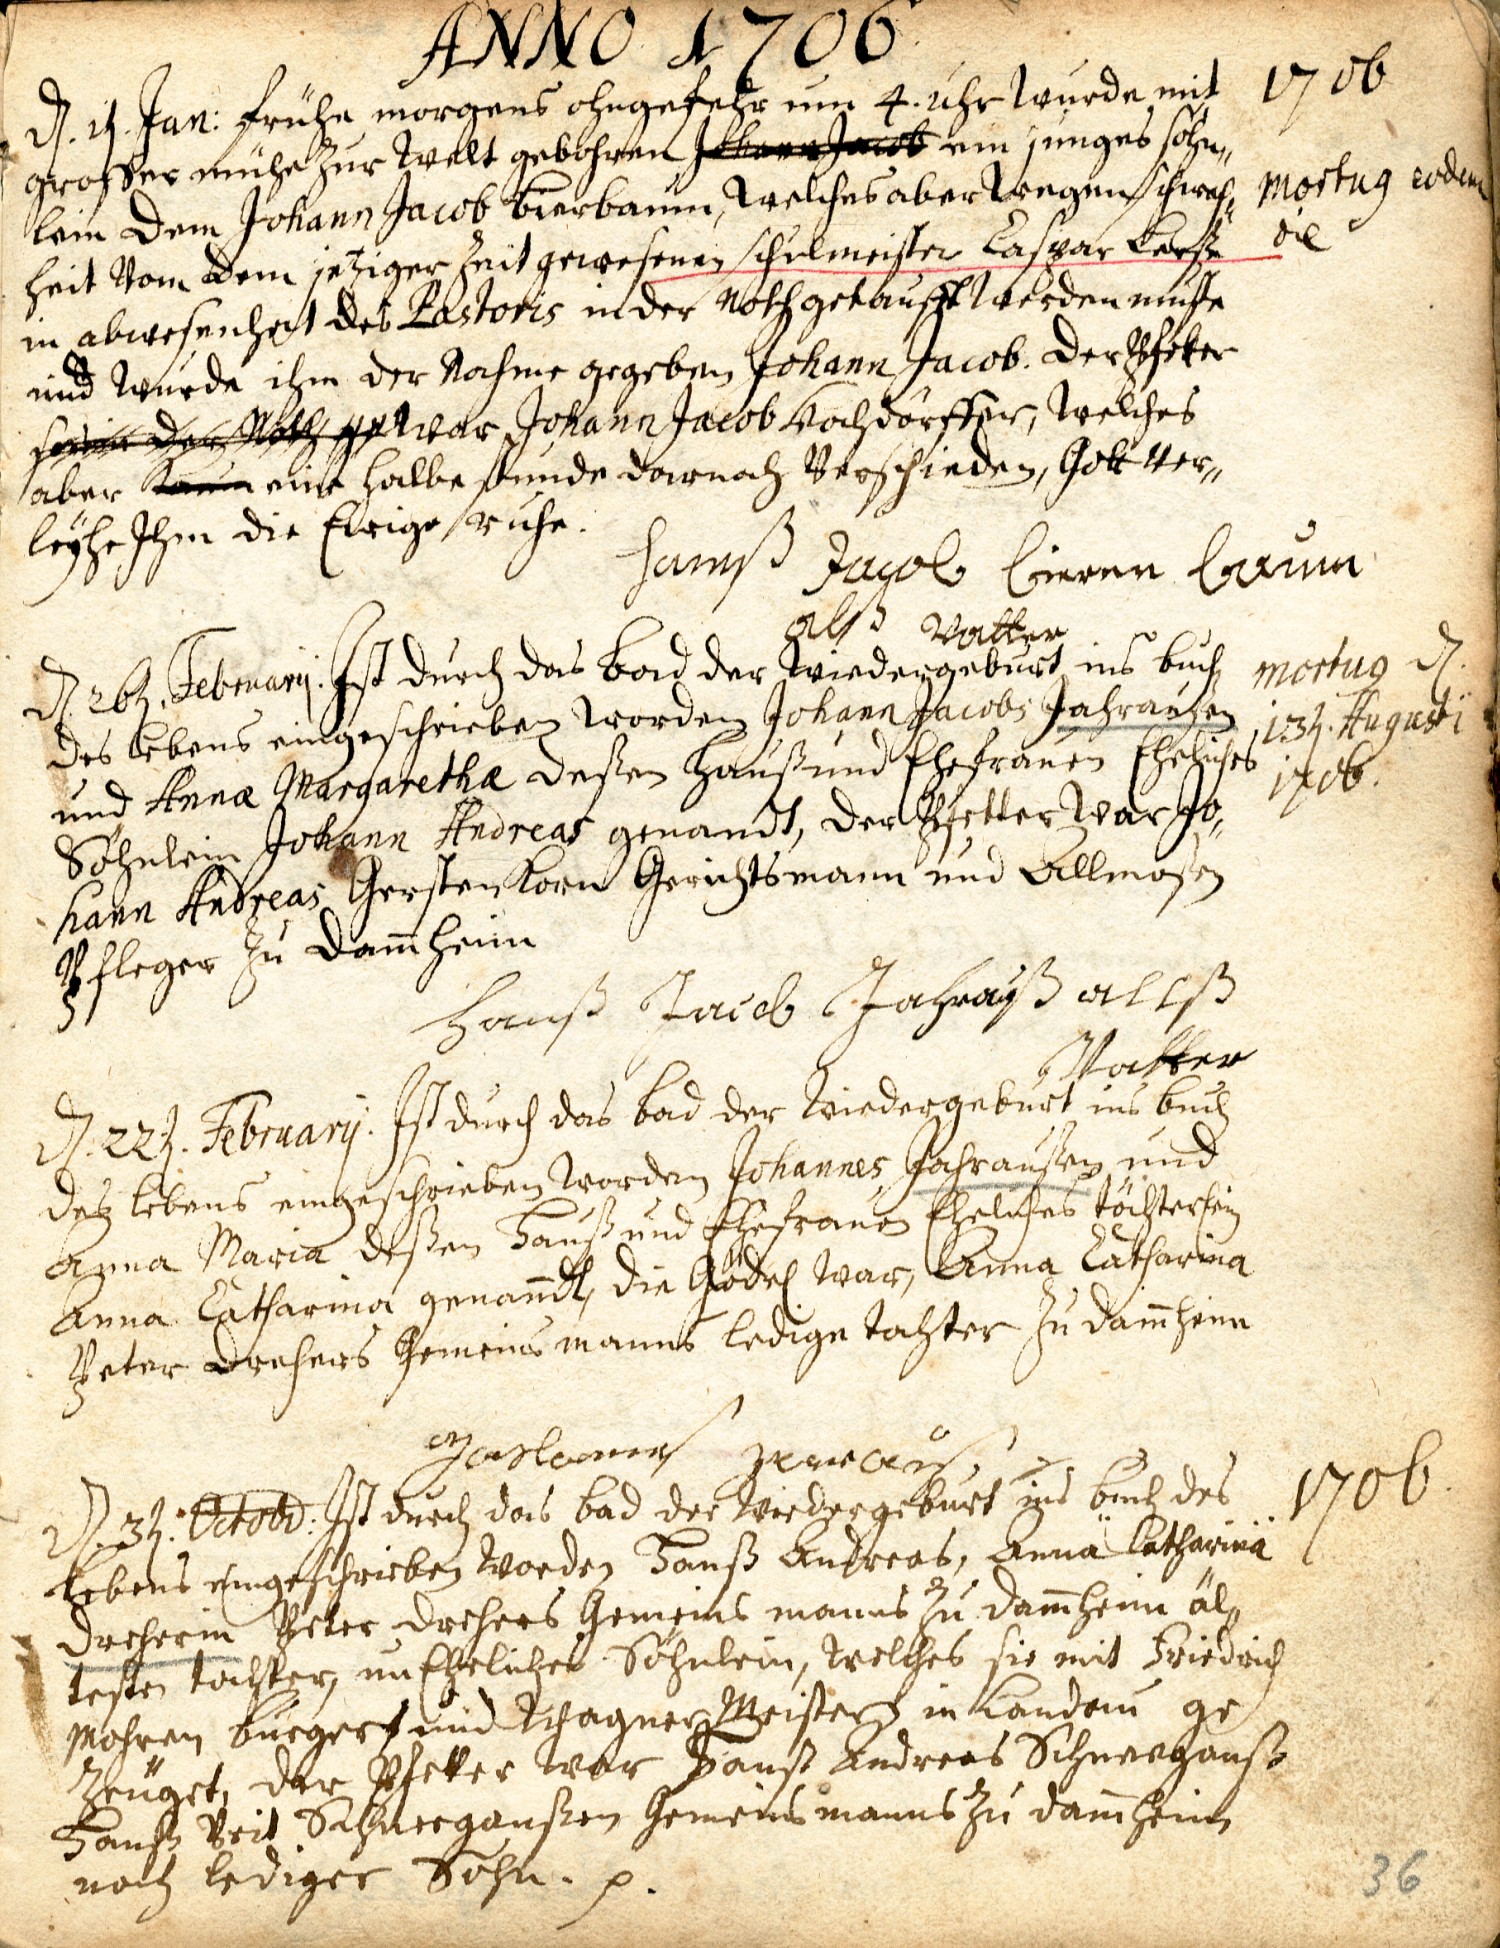 ANNO 1706
1706
D. Jan: frühe morgens ohngefehr um 4. uhr wurde mit
grosser mühe zur Welt gebohren Johann Jacob ein junges söhn„
lein dem Johann Jacob bierbaum, welches aber wegen schwach„
mortuus eodem
die
heit von dem jetziger zeit gewesenen schulmeister Caspar
in abwesenheit des Pastoris in der Noth getaufft werden muste
und wurde ihm der Nahme gegeben Johann Jacob. Der Pfetter
der Noth war Johann Jacob Hochdörffer, welches
aber kaum eine halbe stunde darnach verschieden, Gott ver„
leyhe Ihm die Ewige ruhe.
Hanß Jacob bieren baum
alß vatter
D. Februarij. Ist durch das bad der wiedergeburt ins buch
mortuus d.
des lebens eingeschrieben worden Johann Jacobs Jahraußen
13t. Augusti
und Annæ Margarethæ deßen Hauß und Ehefrauen Eheliches
1706.
Söhnlein Johann Andreas genandt, der Pfetter war Jo„
hann Andreas Gerstenkorn Gerichtsmann und Allmosen
Pfleger zu Dam̅heim
Hanß Jacob Jahrauß allß
Vatter
D. 22t. Februarij. Ist durch das bad der wiedergeburt ins buch
des lebens eingeschrieben worden Johannes Jahraußen und
Anna Maria deßen Hauß und Ehefrauen Eheliches töchterlein
Anna Catharina genan̅dt, die Gödel war, Anna Catharina
Peter Drehers Gemeinsmanns ledige tochter zu Dam̅heim
D. 3t. Octobr: Ist durch das bad der wiedergeburt ins buch des
1706.
lebens eingeschrieben worden Hanß Andreas, Anna Catharina
Dreherin Peter Drehers Gemeins manns zu Dam̅heim äl„
testen tochter, unEheliches Söhnlein, welches sie mit Friedrich
Mohren bürgers und Wagner Meisters in Landau ge
zeuget, der Pfetter war Hanß Andreas Schneeganß
Hanß Veit Schneeganßen Gemeins manns zu Dam̅heim
noch lediger Sohn. p.
36